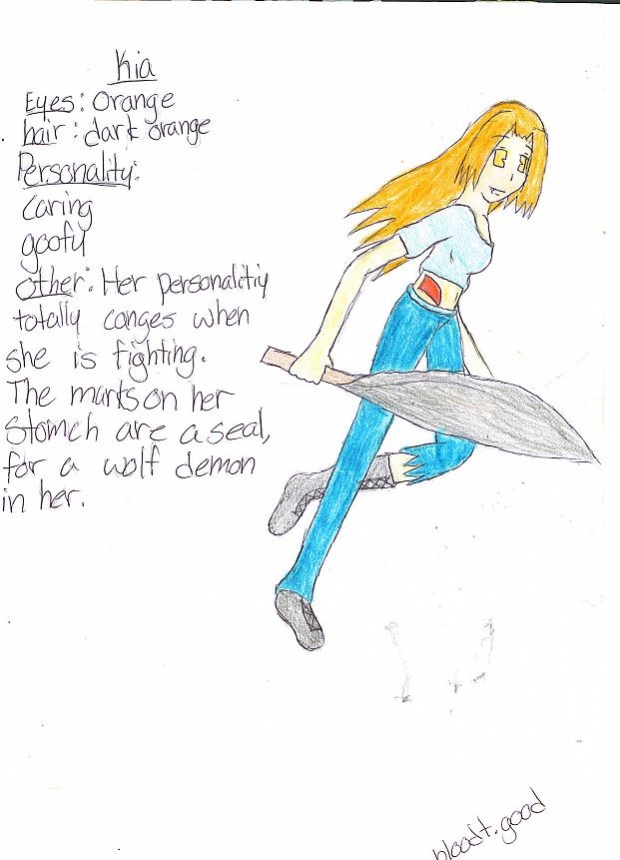 Kia
Eyes: Orange
hair: dark orange
Personality:
Caring
goofy
other: Her personalitiy
totally conges when
she is fighting.
The marks on her
Stomeh are a seal,
for a wolf demon
in her.
bloodt.good